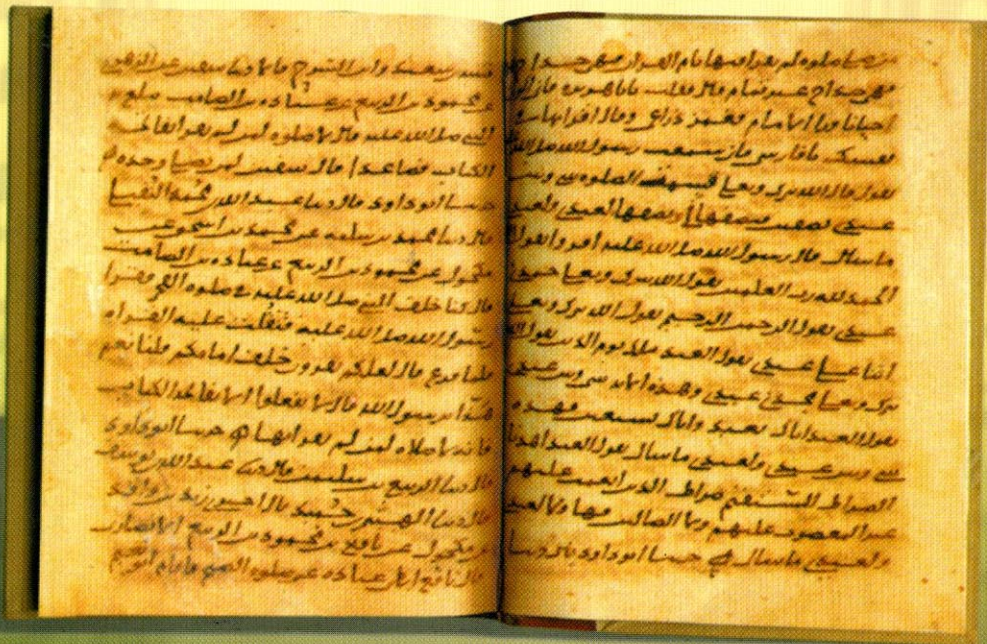 من صلى صلوه لم يقرا فيها بام القران فهي خداج
فهي خداج غير تمام قال فقلت يابا هريره فاني اكون
احيانا ورا الامام فغمز ذراعي وقال اقرا بها في
نفسك يا فارسي فاني سمعت رسول الله صلى الله
يقول قال الله تبرك وتعلى قسمت الصلوه بيني وبين
عبدي نصفين فنصفها لي ونصفها لعبدي ولعبدي
ما سال قال رسول الله صلى الله عليه اقروا يقول
الحمد لله رب العلمين يقول الله تبرك وتعلى حمدني
عبدي يقول الرحمن الرحيم يقول الله تبرك وتعلى
اثنا علي عبدي يقول العبد ملك يوم الدين يقول الله
تبرك وتعلى مجدني عبدي وهذه الايه بيني وبين عبدي
يقول العبد اياك نعبد واياك نستعين فهذه
بيني وبين عبدي ولعبدي ما سال يقول العبد اهدنا
الصراط المستقيم صراط الذين انعمت عليهم
غير المغضوب عليهم ولا الضالين فهاولا لعبدي
ولعبدي ما سال حدثنا ابو داود قال حدثنا
قتيبه بن سعيد وابن السرح قالا حدثنا سفين عن الزهري
عن محمود بن الربيع عن عباده بن الصامت يبلغ به
النبي صلى الله عليه قال لا صلوه لمن لم يقرا بفاتحه
الكتاب فصاعدا قال سفين لمن يصلي وحده
حدثنا ابو داود قال حدثنا عبد الله بن محمد النفيلي
قال حدثنا محمد بن سلمه عن محمد بن اسحق عن
مكحول عن محمود بن الربيع عن عباده بن الصامت
قال كنا خلف النبي صلى الله عليه في صلوه الفجر فقرا
رسول الله صلى الله عليه فثقلت عليه القراه
فلما فرغ قال لعلكم تقرون خلف امامكم قلنا نعم
هذا يرسول الله قال لا تفعلوا الا بفاتحه الكتاب
فانه لا صلاه لمن لم يقرا بها حدثنا ابو داود
قال حدثنا الربيع بن سليمن قال حدثنا عبد الله بن يوسف
قال حدثنا الهيثم بن حميد قال اخبرني زيد بن واقد
عن مكحول عن نافع بن محمود بن الربيع الانصاري
قال نافع ابطا عباده عن صلوه الصبح فاقام ابو نعيم